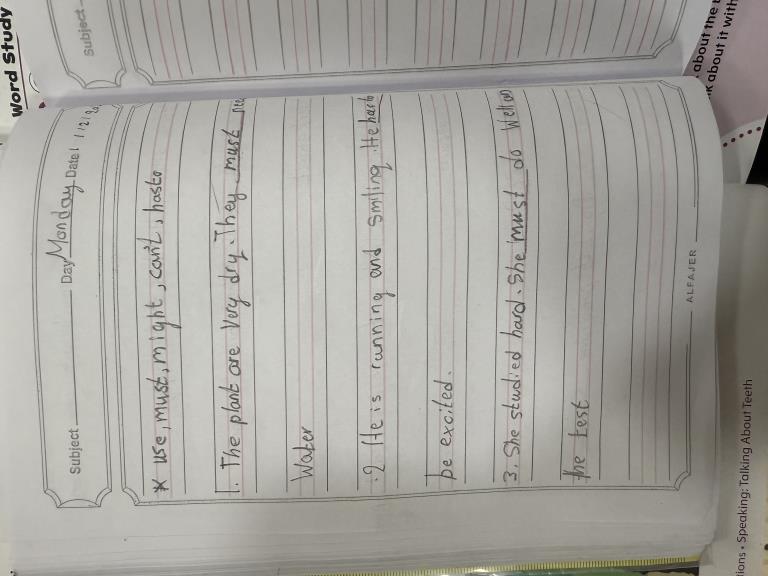 Word Study
Subject
about the
k about it with
Subject Day Monday Date 1 12
* use, must, might, can't, hasto
1. The plant are very dry. They must
Water
:2 He is running and smiling. He hasto
be excited.
3. She studied hard. She must do Well on
the test
ALFAJER
ions • Speaking: Talking About Teeth